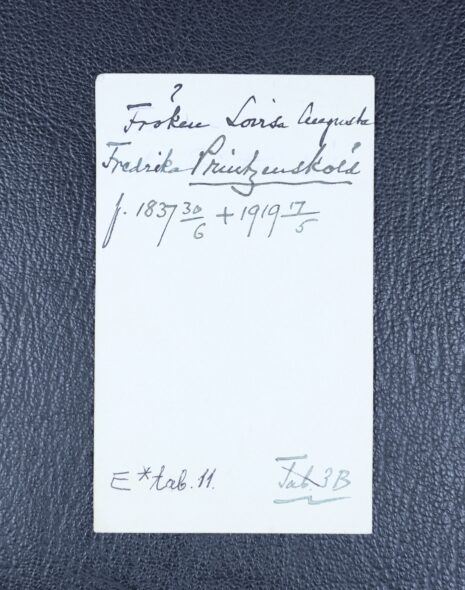 ?
Fröken Lovisa Augusta
Fredrika Printzensköld
f. 1837 30/6 + 1919 17/5
E * tab. 11.
Tab. 3B